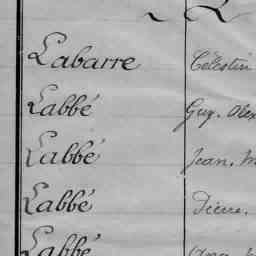 Labarre Célestin
Labbé Guy. Alex
Labbé Jean. M
Labbé Pierre.
Labbé